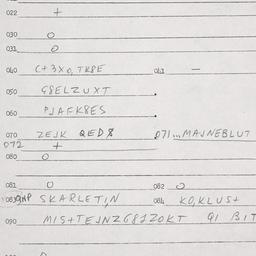 022 +
030 O
031 O
040 C+3X0, TK8E 041 —
050 G8ELZUXT .
060 PJAFK8ES .
070 ZEJK QED8 071... MAJNEBLUT
072 +
080 O
081 O 082 O
083 SKARLETIN 084 KO, KLUS+
090 MIS+TEJNZG8JZOKT QI BIT